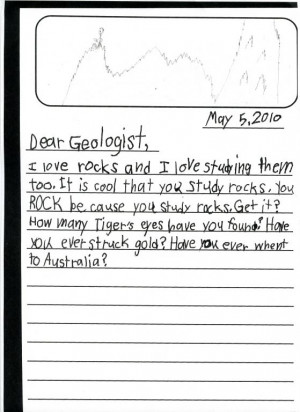 May 5, 2010
Dear Geologist,
I love rocks and I love studing them
too. It is cool that you study rocks. You
ROCK be cause you study rocks. Get it?
How many Tiger's eyes have you found? Have
you ever struck gold? Have you ever whent
to Australia?